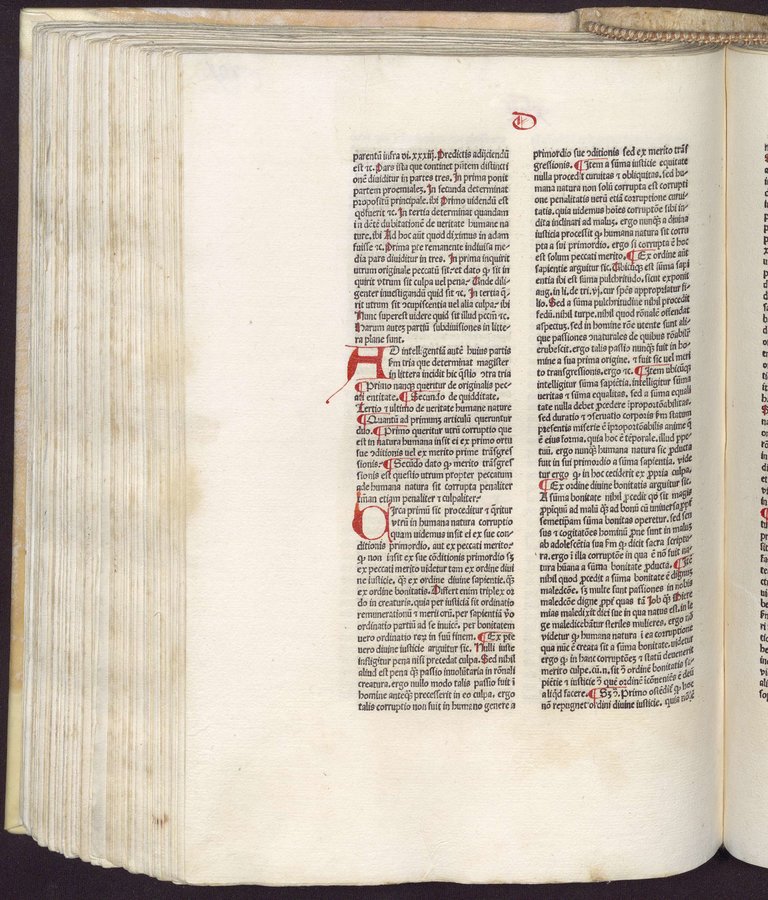 D
parentū infra vi. xxxiij. Predictis adijciendū
est ⁊c. Pars ista que continet pn̄tem distincti
onē diuiditur in partes tres. In prima ponit
partem proemialeꝫ. In secunda determinat
propositū principale. ibi Primo videndū est
qd̄ fuerit ⁊c. In tertia determinat quandam
incidētē dubitationē de veritate humane na
ture. ibi Ad hoc aūt quod diximus in adam
fuisse ⁊c. Prima pte remanente indiuisa me-
dia pars diuiditur in tres. In prima inquirit
utrum originale peccatū sit. et dato ꝙ sit in
quirit vtrum sit culpa uel pena. Unde dili-
genter inuestigandū quid sit ⁊c. In tertia q̄-
rit utrum sit ↄcupiscentia uel alia culpa. ibi
Nunc superest videre quid sit illud pctm̄ ⁊c.
Harum auteꝫ partiū subdiuisiones in litte-
ra plane sunt.
AD intelligentiā autē huius partis
fm̄ tria que determinat magister
in littera incidit hic q̄stio ↄtra tria
Primo nanqꝫ queritur de originalis pec-
cati entitate. Secundo de quidditate.
Tertio ⁊ ultimo de veritate humane nature
Quantū ad primum articulū queruntur
duo. Primo queritur utrū corruptio que
est in natura humana insit ei ex primo ortu
sue ↄditionis uel ex merito prime trāsgres
sionis. Secūdo dato ꝙ merito trāsgres
sionis est questio utrum propter peccatum
ade humana natura sit corrupta penaliter
tm̄ an etiam penaliter ⁊ culpaliter.
CIrca primū sic proceditur ⁊ q̄ritur
vtrū in humana natura corruptio
quam videmus insit ei ex sue con-
ditionis primordio. aut ex peccati merito.
ꝙ non insit ex sue cōditionis primordio sꝫ
ex peccati merito videtur tam ex ordine diui
ne iusticie. qꝫ ex ordine diuine sapientie. qꝫ
ex ordine bonitatis. Differt enim triplex or
do in creaturis. quia per iusticiā fit ordinatio
remunerationū ⁊ meritorū. per sapientiā vo
ordinatio partiū ad se inuicē. per bonitatem
uero ordinatio rerū in suū finem. Ex pte
vero diuine iusticie arguitur sic. Nulli iuste
infligitur pena nisi precedat culpa. Sed nihil
aliud est pena qꝫ passio inuolūtaria in rōnali
creatura. ergo nullo modo talis passio fuit ī
homine anteqꝫ precesserit in eo culpa. ergo
talis corruptio non fuit in humano genere a
primordio sue ↄditionis sed ex merito trās
gressionis. Item a sūma iusticie equitate
nulla procedit curuitas ⁊ obliquitas. sed hu-
mana natura non solū corrupta est corrupti
one penalitatis verū etiā corruptione curui-
tatis. quia uidemus hoīes corruptōe sibi in-
dita inclinari ad maluꝫ. ergo nunqꝫ a diuina
iusticia processit ꝙ humana natura sit corru
pta a sui primordio. ergo si corrupta ē hoc
est solum peccati merito. Ex ordine aūt
sapientie arguitur sic. Ubicūqꝫ est sūma sapi
entia ibi est sūma pulchritudo. sicut exponit
aug. in li. de tri. vi. cur spēs appropriatur fi-
lio. Sed a sūma pulchritudine nihil procedit
fedū. nihil turpe. nihil quod rōnale offendat
aspectuꝫ. sed in homine rōne utente sunt ali-
que passiones ⁊ naturales de quibus rōabilr̄
erubescit. ergo talis passio nunqꝫ fuit in ho-
mine a sua prima origine. ⁊ fuit sic uel meri
to transgressionis. ergo ⁊c. Item ubicūqꝫ
intelligitur sūma sapiētia. intelligitur sūma
veritas ⁊ sūma equalitas. sed a sūma equali
tate nulla debet ꝓcedere īproportōabilitas.
sed duratio ⁊ ↄseruatio corporis fm̄ statum
presentis miserie ē īproportōabilis anime ꝗ
ē eius forma. quia hoc ē tēporale. illud ppe-
tuū. ergo nunqꝫ humana natura sic ꝓducta
fuit in sui primordio a sūma sapientia. vide
tur ergo ꝙ in hoc ceciderit ex ꝓpria culpa.
Ex ordine diuine bonitatis arguitur sic.
A sūma bonitate nihil ꝓcedit qd̄ sit magis
ꝓpīquū ad malū qꝫ ad bonū cū uniuersa ꝓpt̄
semetipsam sūma bonitas operetur. sed sen
sus ⁊ cogitatōes hominū ꝓne sunt in malum
ab adolescētia sua fm̄ ꝙ dicit sacra scriptu-
ra. ergo illa corruptōe in qua ē nō fuit na-
tura hūana a sūma bonitate ꝓducta. Itē
nihil quod ꝓcedit a sūma bonitate ē dignum
maledcōe. sꝫ multe sunt passiones in nobis
maledcōe digne ꝓpt̄ quas tā Iob qꝫ Hiere
mias maledixit diei sue in qua natus est. in le
ge maledicebātur steriles mulieres. ergo nō
videtur ꝙ humana natura in ea corruptione
qua nūc ē creata sit a sūma bonitate. uidetur
ergo ꝙ in hanc corruptōeꝫ ⁊ statū deuenerit
merito culpe. cū. n. sit ꝯ ordinē bonitatis sa-
piētie ⁊ iusticie ꝯ quē ordinē īcōueniēs ē deū
aliqd facere. Sꝫ ꝯ. Primo ostēdit̄ ꝙ hoc
nō repugnet ordini diuine iusticie. quia nō ē